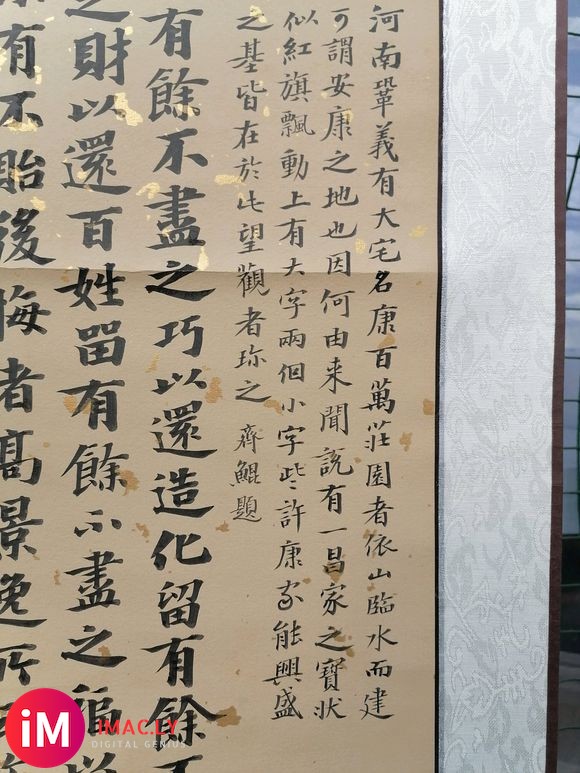 河南鞏義有大宅名康百萬莊園者依山臨水而建
可謂安康之地也因何由来聞説有一昌家之寶狀
似紅旗飄動上有大字兩個小字些許康家能興盛
之基皆在於此望觀者珍之 齊鯤題
有餘不盡之巧以還造化留有餘不
之財以還百姓留有餘不盡之福以
有不貽後悔者高景逸所
iM IMAC.LY
DIGITAL GENIUS